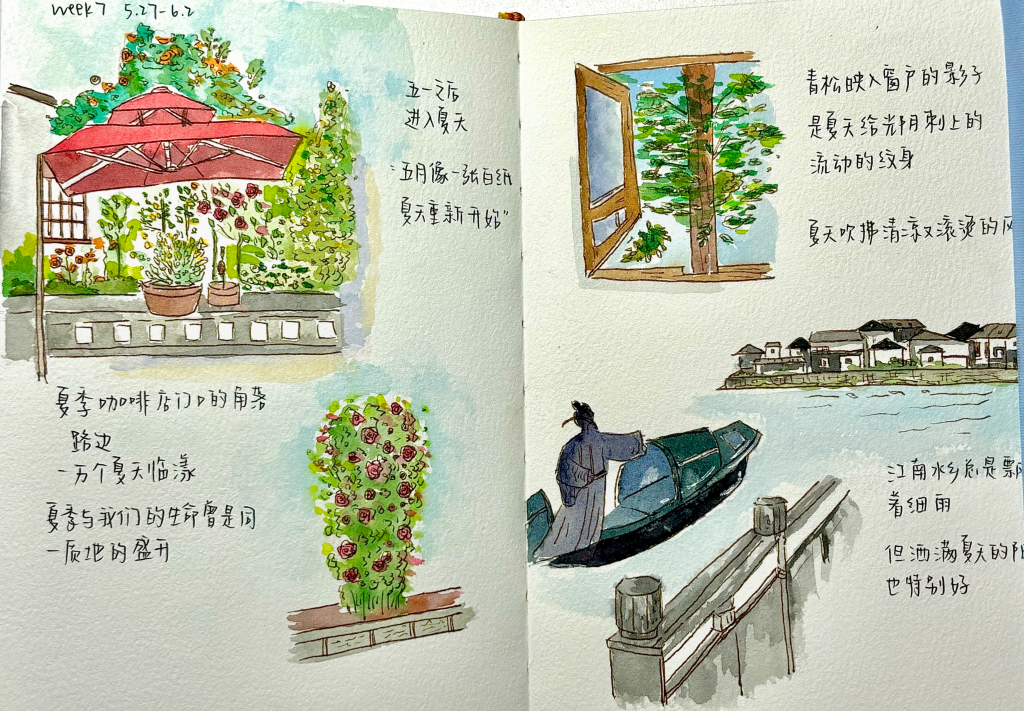 week7 5.27-6.2
五一之后
进入夏天
"五月像一张白纸
夏天重新开始"
夏季咖啡店门口的角落
路边
一万个夏天临漾
夏季与我们的生命曾是同
一质地的盛开
青松映入窗户的影子
是夏天给光阴刺上的
流动的纹身
夏天吹拂清凉又滚烫的风
江南水乡总是飘
着细雨
但洒满夏天的阳
也特别好